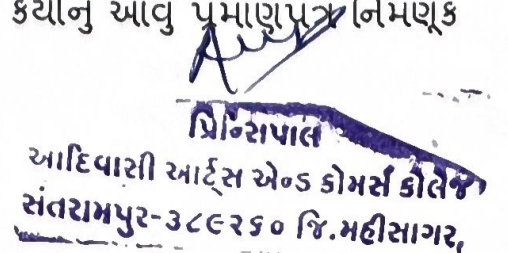 કર્યાનું આવું પ્રમાણપત્ર નિમણૂક
પ્રિન્સિપાલ
આદિવાસી આર્ટ્સ એન્ડ કોમર્સ કોલેજ
સંતરામપુર-૩૮૯૨૬૦ જિ.મહીસાગર,